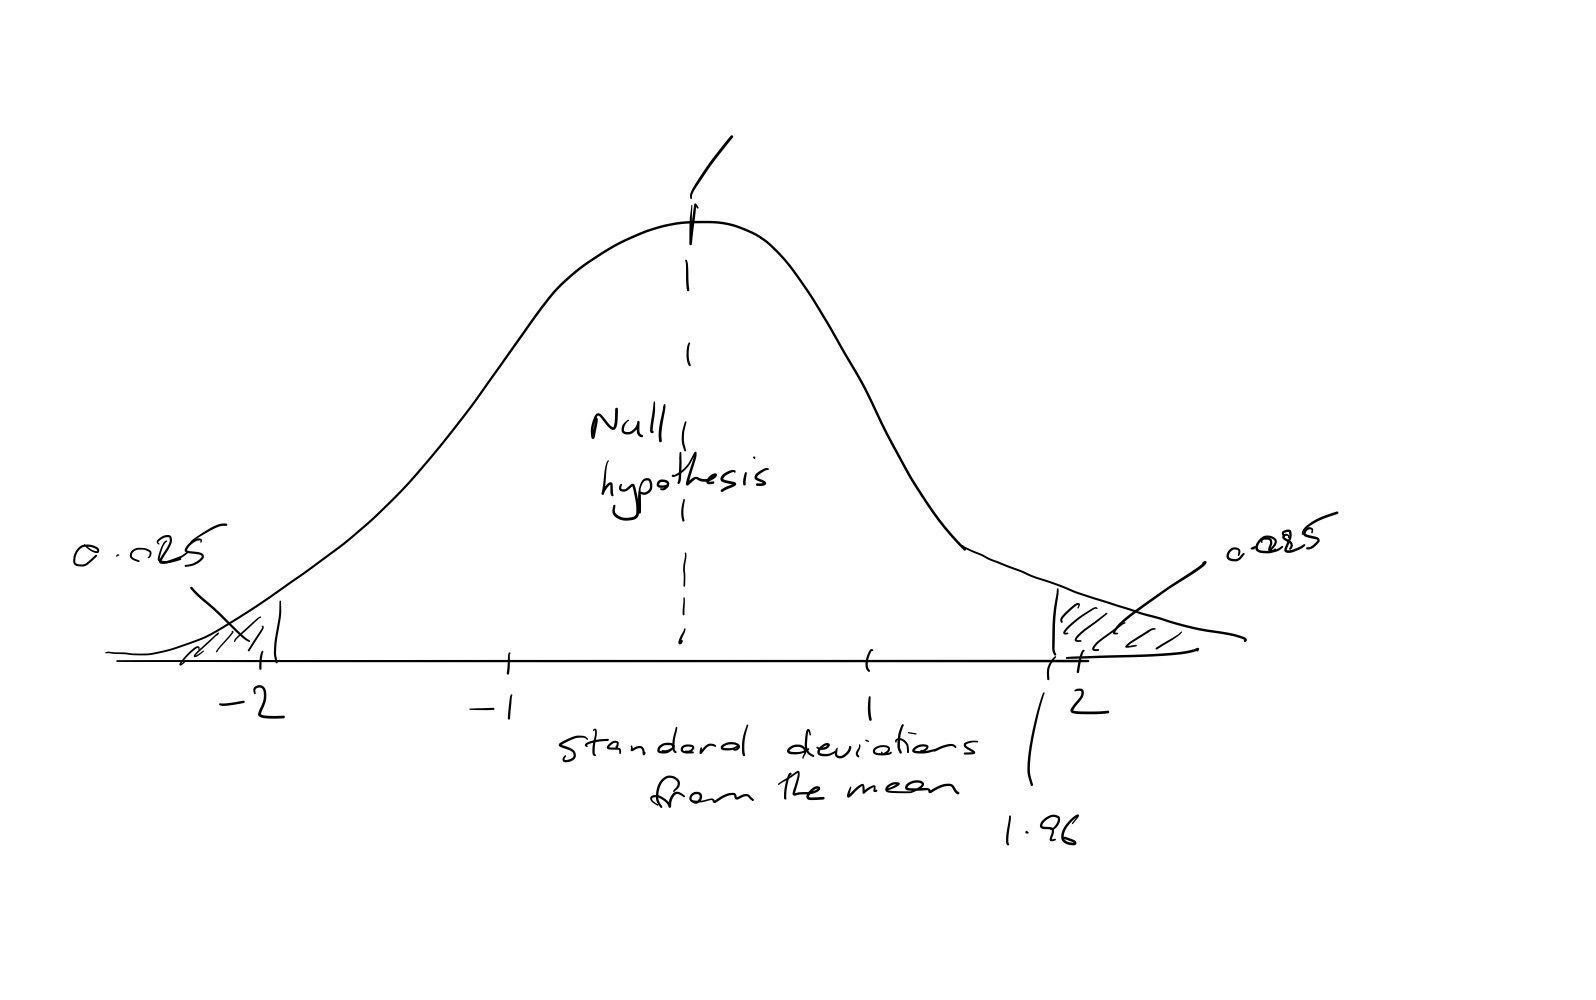 Null
hypothesis
0.025
0.025
-2
-1
1
2
standard deviations
from the mean
1.96